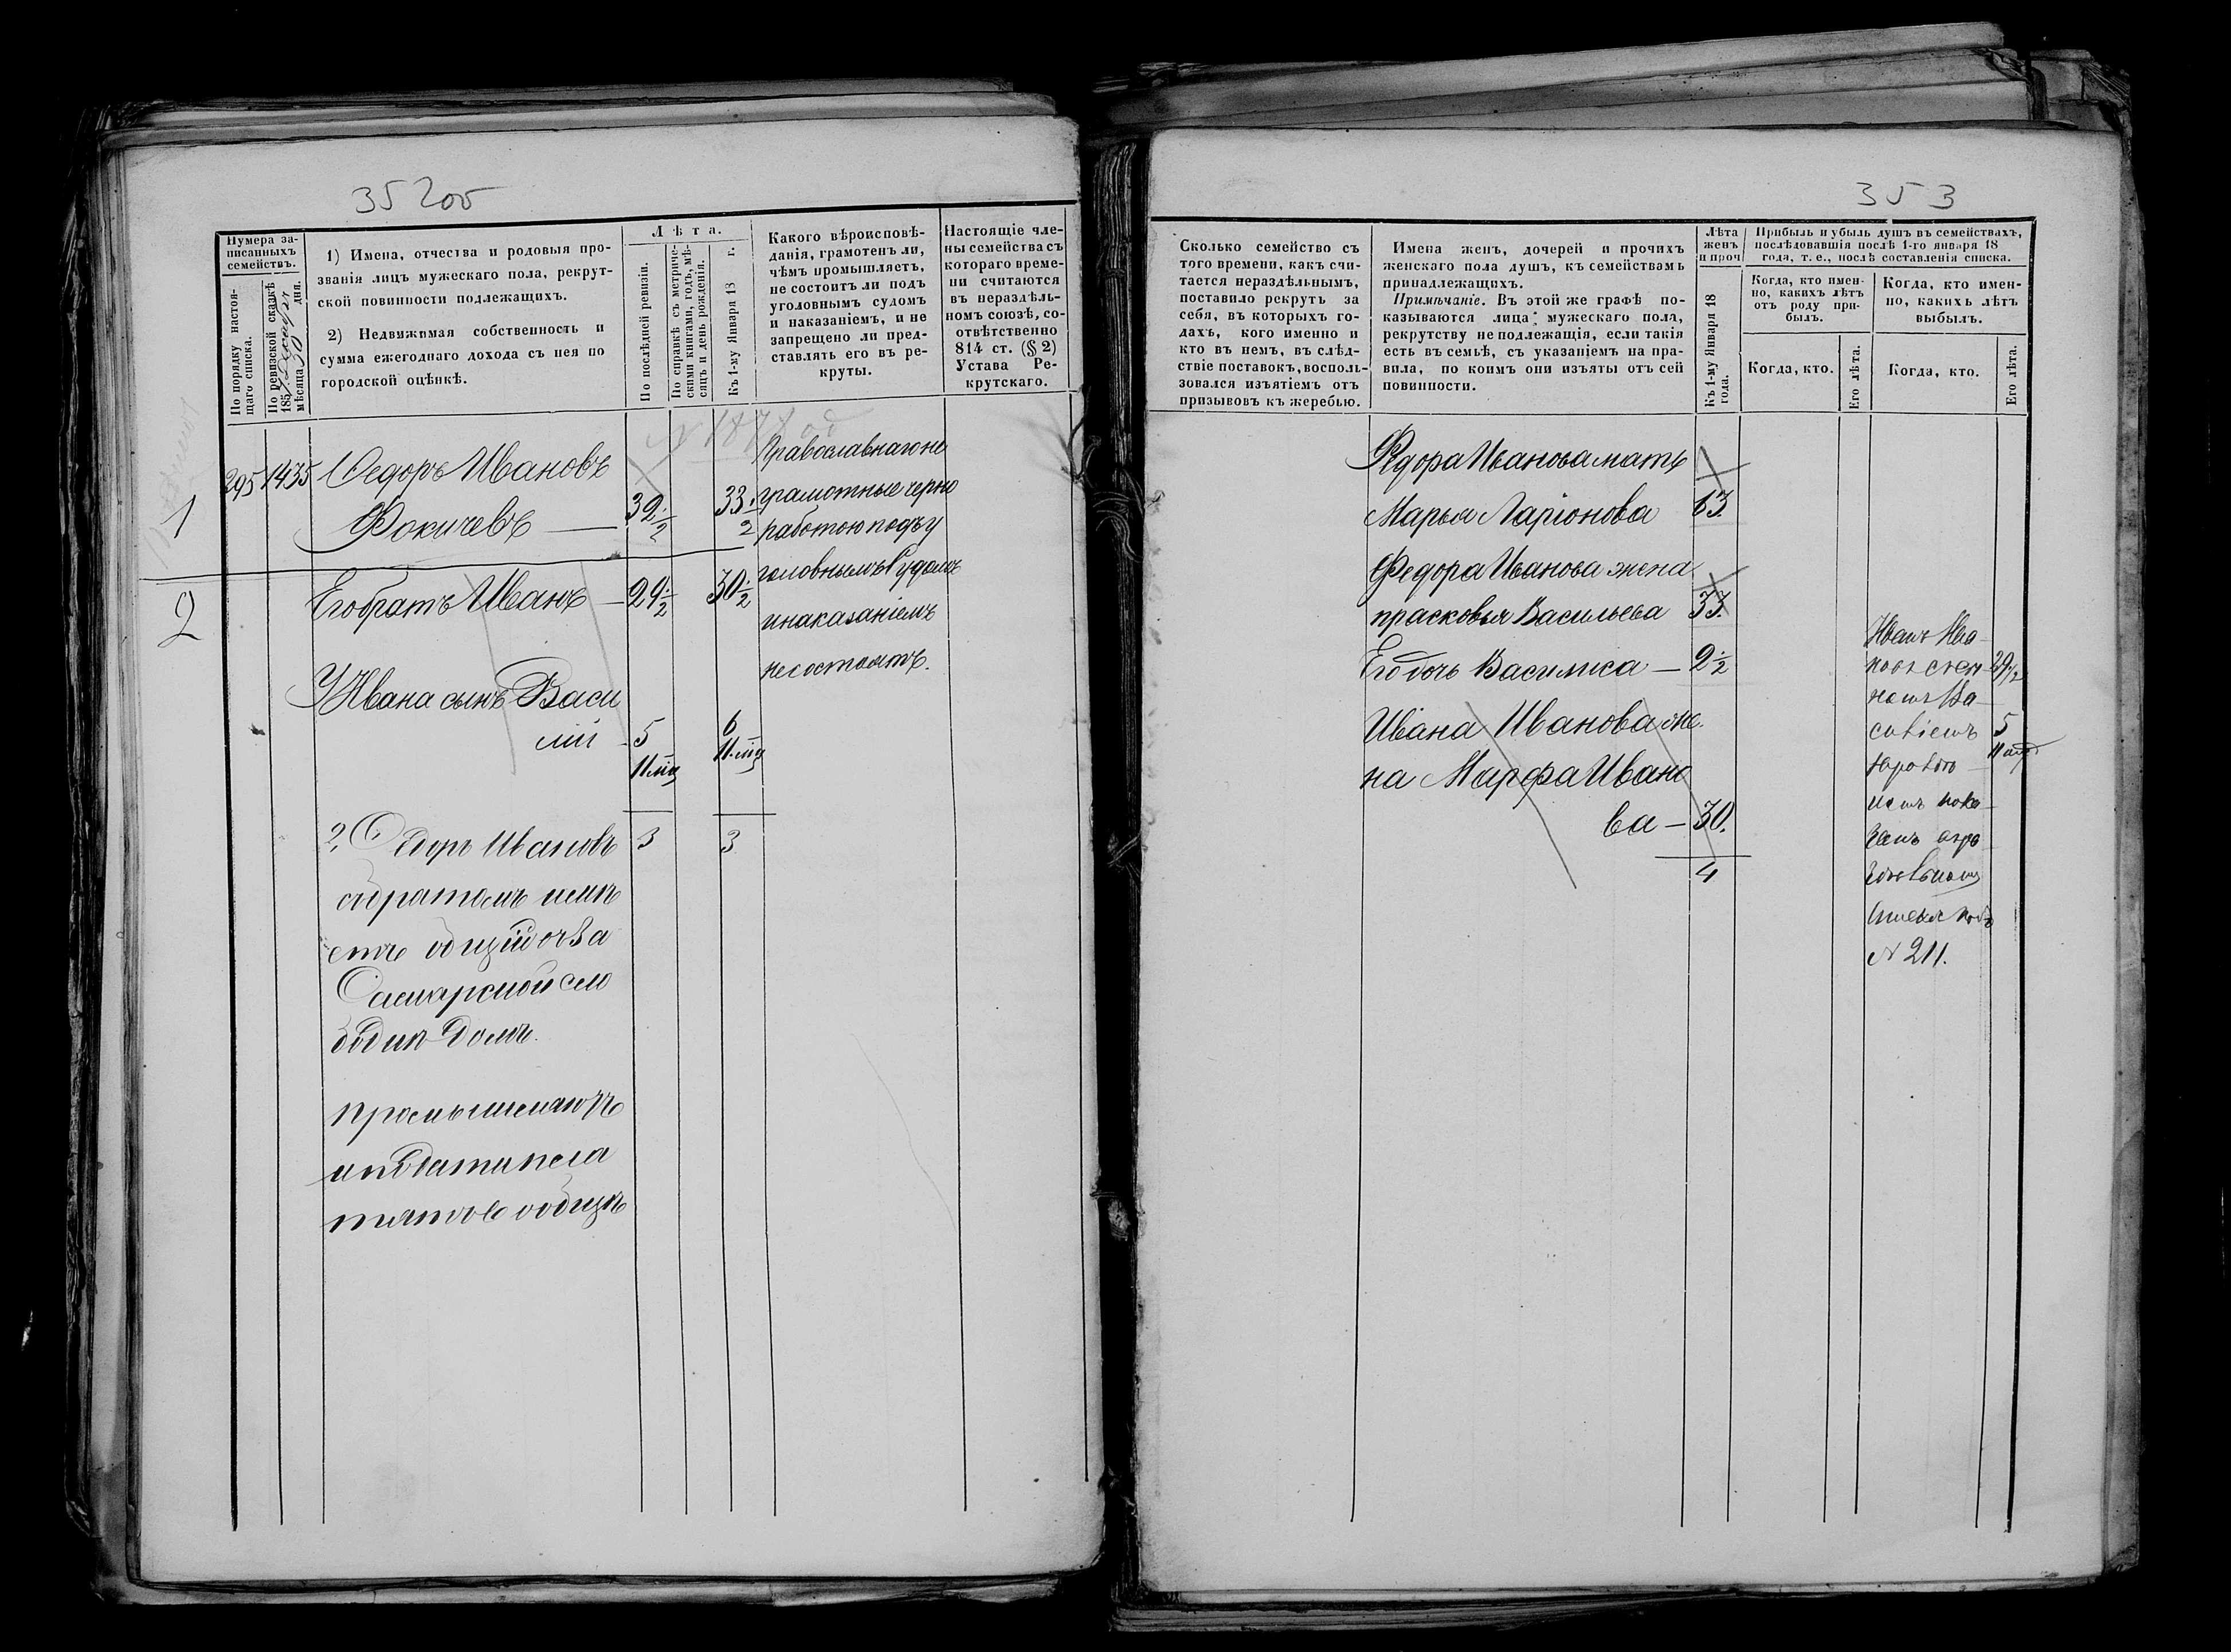 35 2об
Нумера за-
писанныхъ
семействъ.
По порядку настоя-
щаго списка.
По ревизской сказкѣ
185 Декабря
мѣсяца 30 дня.
1) Имена, отчества и родовыя про-
званія лицъ мужескаго пола, рекрут-
ской повинности подлежащихъ.
2) Недвижимая собственность и
сумма ежегоднаго дохода съ нея по
городской оцѣнкѣ.
Лѣта.
По послѣдней ревизіи.
По справкѣ съ метриче-
скими книгами, годъ, мѣ-
сяцъ и день рожденія.
Къ 1-му Января 18 г.
Какого вѣроисповѣ-
данія, грамотенъ ли,
чѣмъ промышляетъ,
не состоитъ ли подъ
уголовнымъ судомъ
и наказаніемъ, и не
запрещено ли пред-
ставлять его въ ре-
круты.
Настоящіе чле-
ны семейства съ
котораго време-
ни считаются
въ нераздѣль-
номъ союзѣ, со-
отвѣтственно
814 ст. (§ 2)
Устава Ре-
крутскаго.
1
295 1435 Федоръ Ивановъ
Фокичевъ — 32 1/2 33 1/2
2
Его братъ Иванъ — 29 1/2 30 1/2
У Ивана сынъ Васи
лій - 5 6
11 мѣц 11 мѣц
3 3
Православнаго не
грамотные черно
работою подъ у
головнымъ Судомъ
и наказаніемъ
не состоятъ.
2, Федоръ Ивановъ
съ братомъ имѣ
етъ общій оъ за
Самарской сло
бодѣ домъ.
промышляютъ
и подати пла
тятъ во общѣ
353
Сколько семейство съ
того времени, какъ счи-
тается нераздѣльнымъ,
поставило рекрутъ за
себя, въ которыхъ го-
дахъ, кого именно и
кто въ немъ, въ слѣд-
ствіе поставокъ, восполь-
зовался изъятіемъ отъ
призывовъ къ жеребью.
Имена женъ, дочерей и прочихъ
женскаго пола душъ, къ семействамъ
принадлежащихъ.
Примѣчаніе. Въ этой же графѣ по-
казываются лица мужескаго пола,
рекрутству не подлежащія, если такія
есть въ семьѣ, съ указаніемъ на пра-
вила, по коимъ они изъяты отъ сей
повинности.
Лѣта
женъ
и проч
Къ 1-му Января 18
года.
Прибыль и убыль душъ въ семействахъ,
послѣдовавшія послѣ 1-го января 18
года, т. е., послѣ составленія списка.
Когда, кто имен-
но, какихъ лѣтъ
отъ роду при-
былъ.
Когда, кто имен-
но, какихъ лѣтъ
выбылъ.
Когда, кто.
Его лѣта.
Когда, кто.
Его лѣта.
Федора Иванова мать
Марья Ларіонова 63.
Федора Иванова жена
прасковья Васильева 33.
Его дочь Василиса — 2 1/2
Ивана Иванова же.
на Марфа Ивано
ва — 30.
4
Иванъ Ива-
новъ съ сы- 29 1/2
номъ Ва-
силіемъ 5
11 мѣц
пока-
занъ
подъ
N 211.